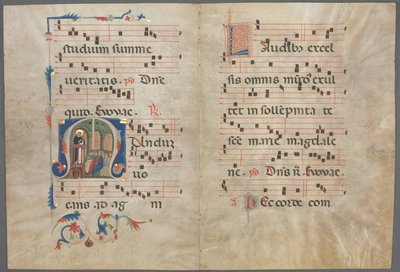 studium summe
ueritatis. ps Dne
quid. Evovae. R.
Andux
uo
cans ad ag ni
Laudibus excel
sis omnis mundus exul
tet in sollempnitate
see marie magdale
ne. ps Dns R. Evovae.
a Nec corde com